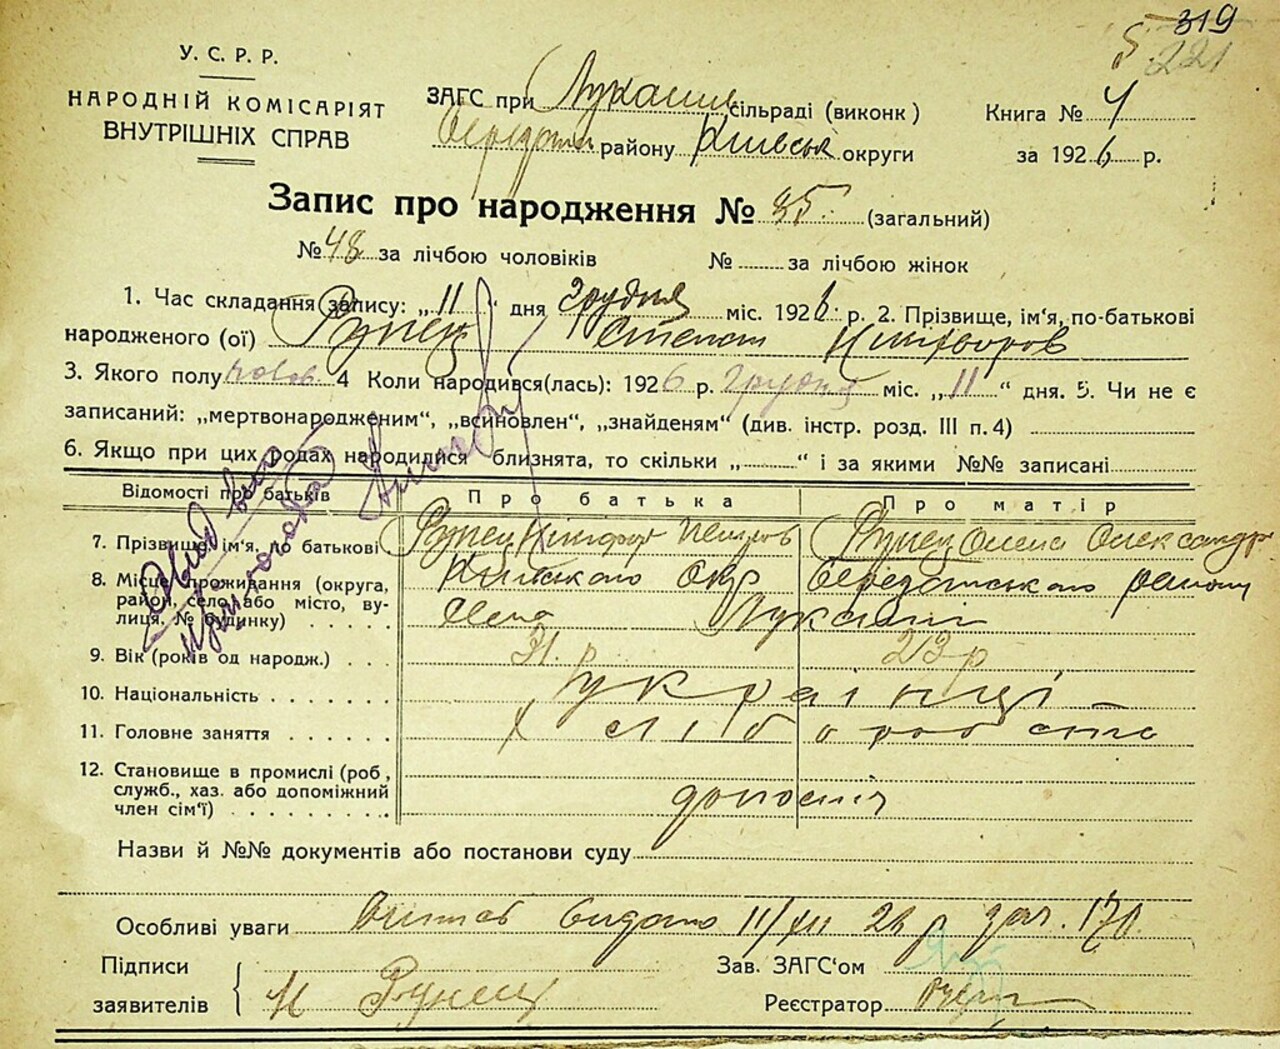 319
221
У. С. Р. Р.
НАРОДНІЙ КОМІСАРІЯТ
ВНУТРІШНІХ СПРАВ
ЗАГС при Лукаши сільраді (виконк )
району Київськ округи
Книга № 4
за 1926 р.
Запис про народження № 85. (загальний)
№ 48 за лічбою чоловіків № за лічбою жінок
1. Час складання запису: „11“ дня Грудня міс. 1926 р. 2. Прізвище, ім'я, по-батькові
народженого (ої) Рупец Степан Никіфоров
3. Якого полу 4 Коли народився(лась): 1926 р. грудня міс. „11“ дня. 5. Чи не є
записаний: „мертвонародженим“, „всиновлен“, „знайденям“ (див. інстр. розд. III п. 4)
6. Якщо при цих родах народилися близнята, то скільки „ “ і за якими №№ записані
Відомості про батьків Про батька Про матір
7. Прізвище, ім'я, по батькові Рупец Нікіфор Петров Рупец Олена Олександр
8. Місце проживання (округа, Київського Окр Березанського району
район, село або місто, ву-
лиця, № будинку) Село Лукаши
9. Вік (років од народж.) 31. р 23 р
10. Національність українці
11. Головне заняття хліборобство
12. Становище в промислі (роб,
служб., хаз. або допоміжний
член сім'ї)
Назви й №№ документів або постанови суду
Особливі уваги видано 11/XII 26 р 170.
Підписи
заявителів Н Рупец
Зав. ЗАГС'ом
Реєстратор